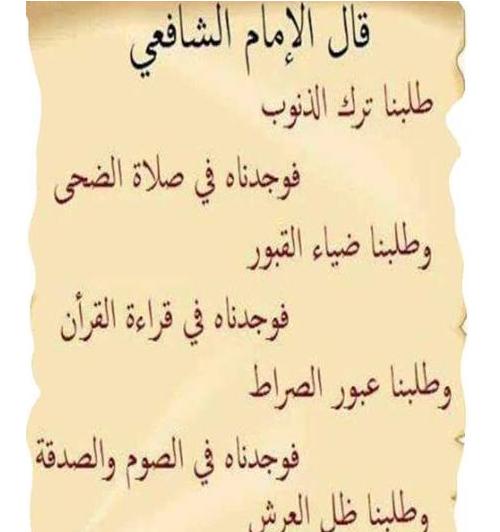 قال الإمام الشافعي
طلبنا ترك الذنوب
فوجدناه في صلاة الضحى
وطلبنا ضياء القبور
فوجدناه في قراءة القرأن
وطلبنا عبور الصراط
فوجدناه في الصوم والصدقة
وطلبنا ظل العرش